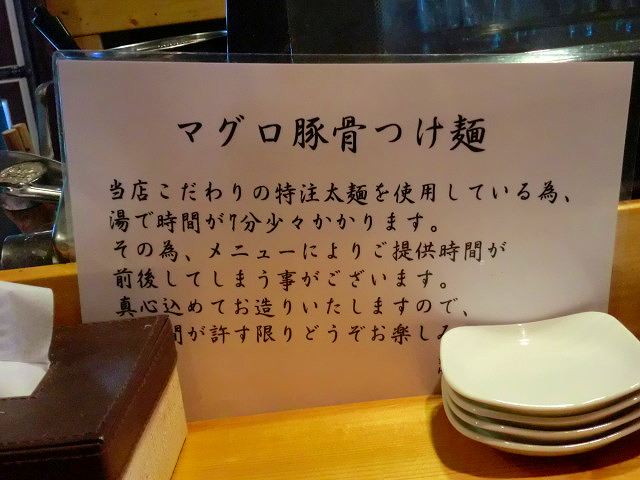 マグロ豚骨つけ麺
当店こだわりの特注太麺を使用している為、
湯で時間が7分少々かかります。
その為、メニューによりご提供時間が
前後してしまう事がございます。
真心込めてお造りいたしますので、
間が許す限りどうぞお楽しみ